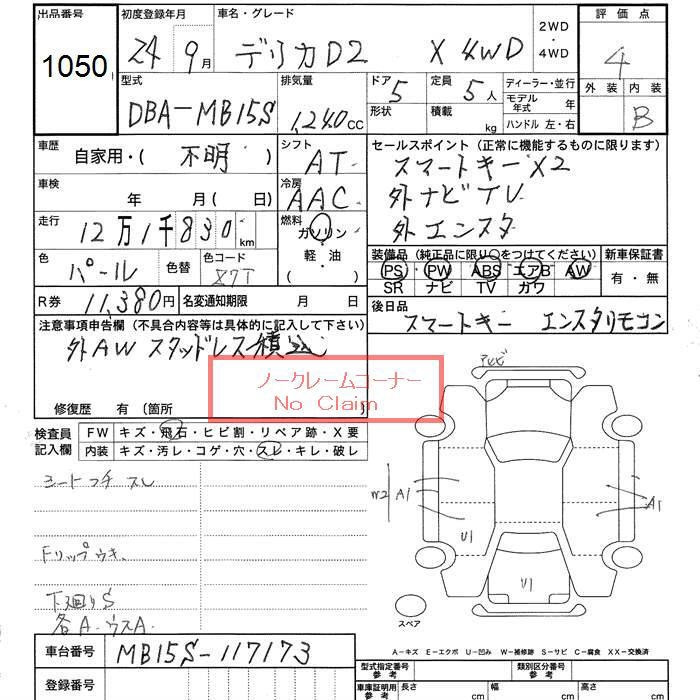 出品番号 初度登録年月 車名・グレード 2WD・4WD 評価点
1050 24 9月 デリカD2 X 4WD 4
型式 排気量 ドア 5 定員 5人 ディーラー・並行 外装 内装
DBA-MB15S 1,240cc 形状 積載 kg モデル年式 年 B
ハンドル 左・右
車歴 自家用・( 不明 ) シフト AT セールスポイント(正常に機能するものに限ります)
スマートキーX2
車検 年 月( 日) 冷房 AAC 外ナビTV
走行 12万1千830km 燃料 ガソリン・軽油・( ) 外エンスタ
色 パール 色替 色コード Z7T 装備品(純正品に限り○をつけてください) 新車保証書
PS PW ABS エアB AW 有・無
SR ナビ TV カワ
R券 11,380円 名変通知期限 月 日 後日品
スマートキー エンスタリモコン
注意事項申告欄(不具合内容等は具体的に記入して下さい)
外AWスタッドレス積込
ノークレームコーナー
No Claim
修復歴 有(箇所 )
検査員記入欄 FW キズ・飛石・ヒビ割・リペア跡・X要
内装 キズ・汚レ・コゲ・穴・スレ・キレ・破レ
シートコゲ スレ
Fリップウキ
下廻りS
各A-ウスA
W2 A1 U1 U1 A1
スペア
A-キズ E-エクボ U-凹み W-補修跡 S-サビ C-腐食 XX-交換済
車台番号 MB15S-117173
型式指定番号 参考 類別区分番号 参考
登録番号
車庫証明用 参考 長さ cm 幅 cm 高さ cm